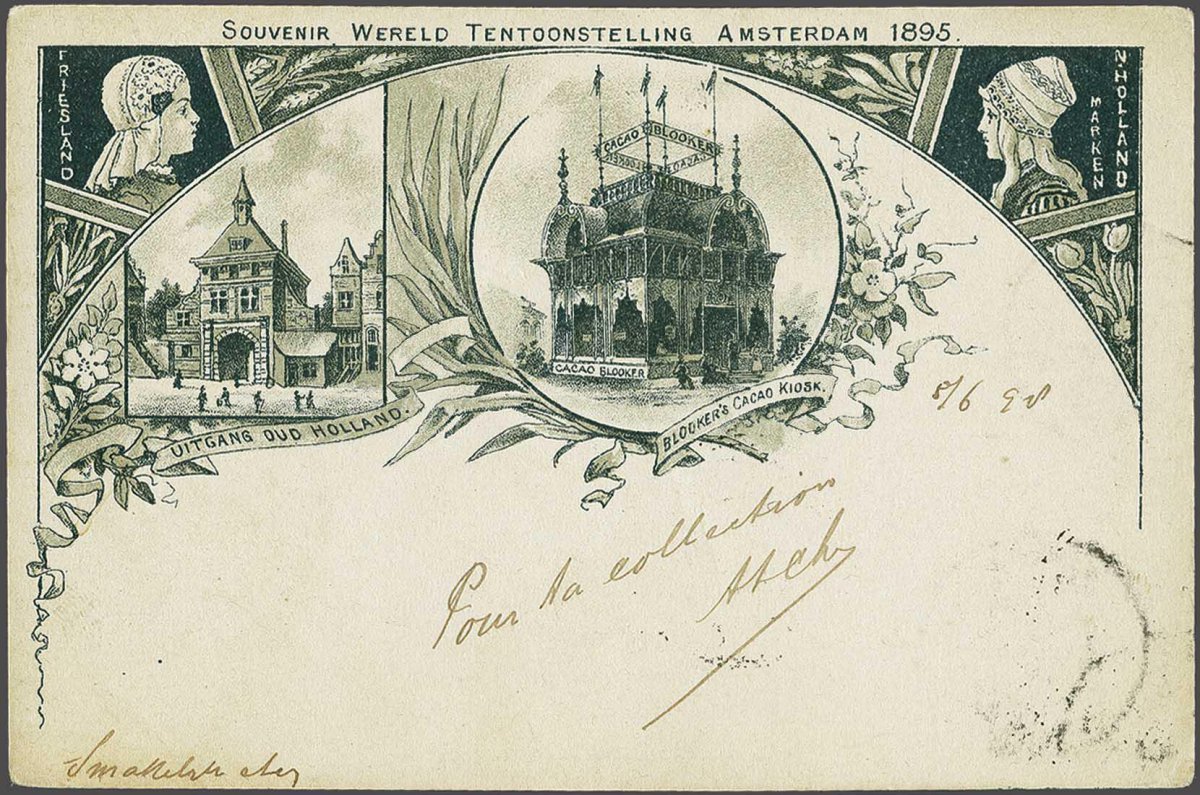 SOUVENIR WERELD TENTOONSTELLING AMSTERDAM 1895.
FRIESLAND
N HOLLAND
MARKEN
CACAO BLOOKER
CACAO BLOOKER
UITGANG OUD HOLLAND.
BLOOKER'S CACAO KIOSK.
5/6 98
Pour ta collection